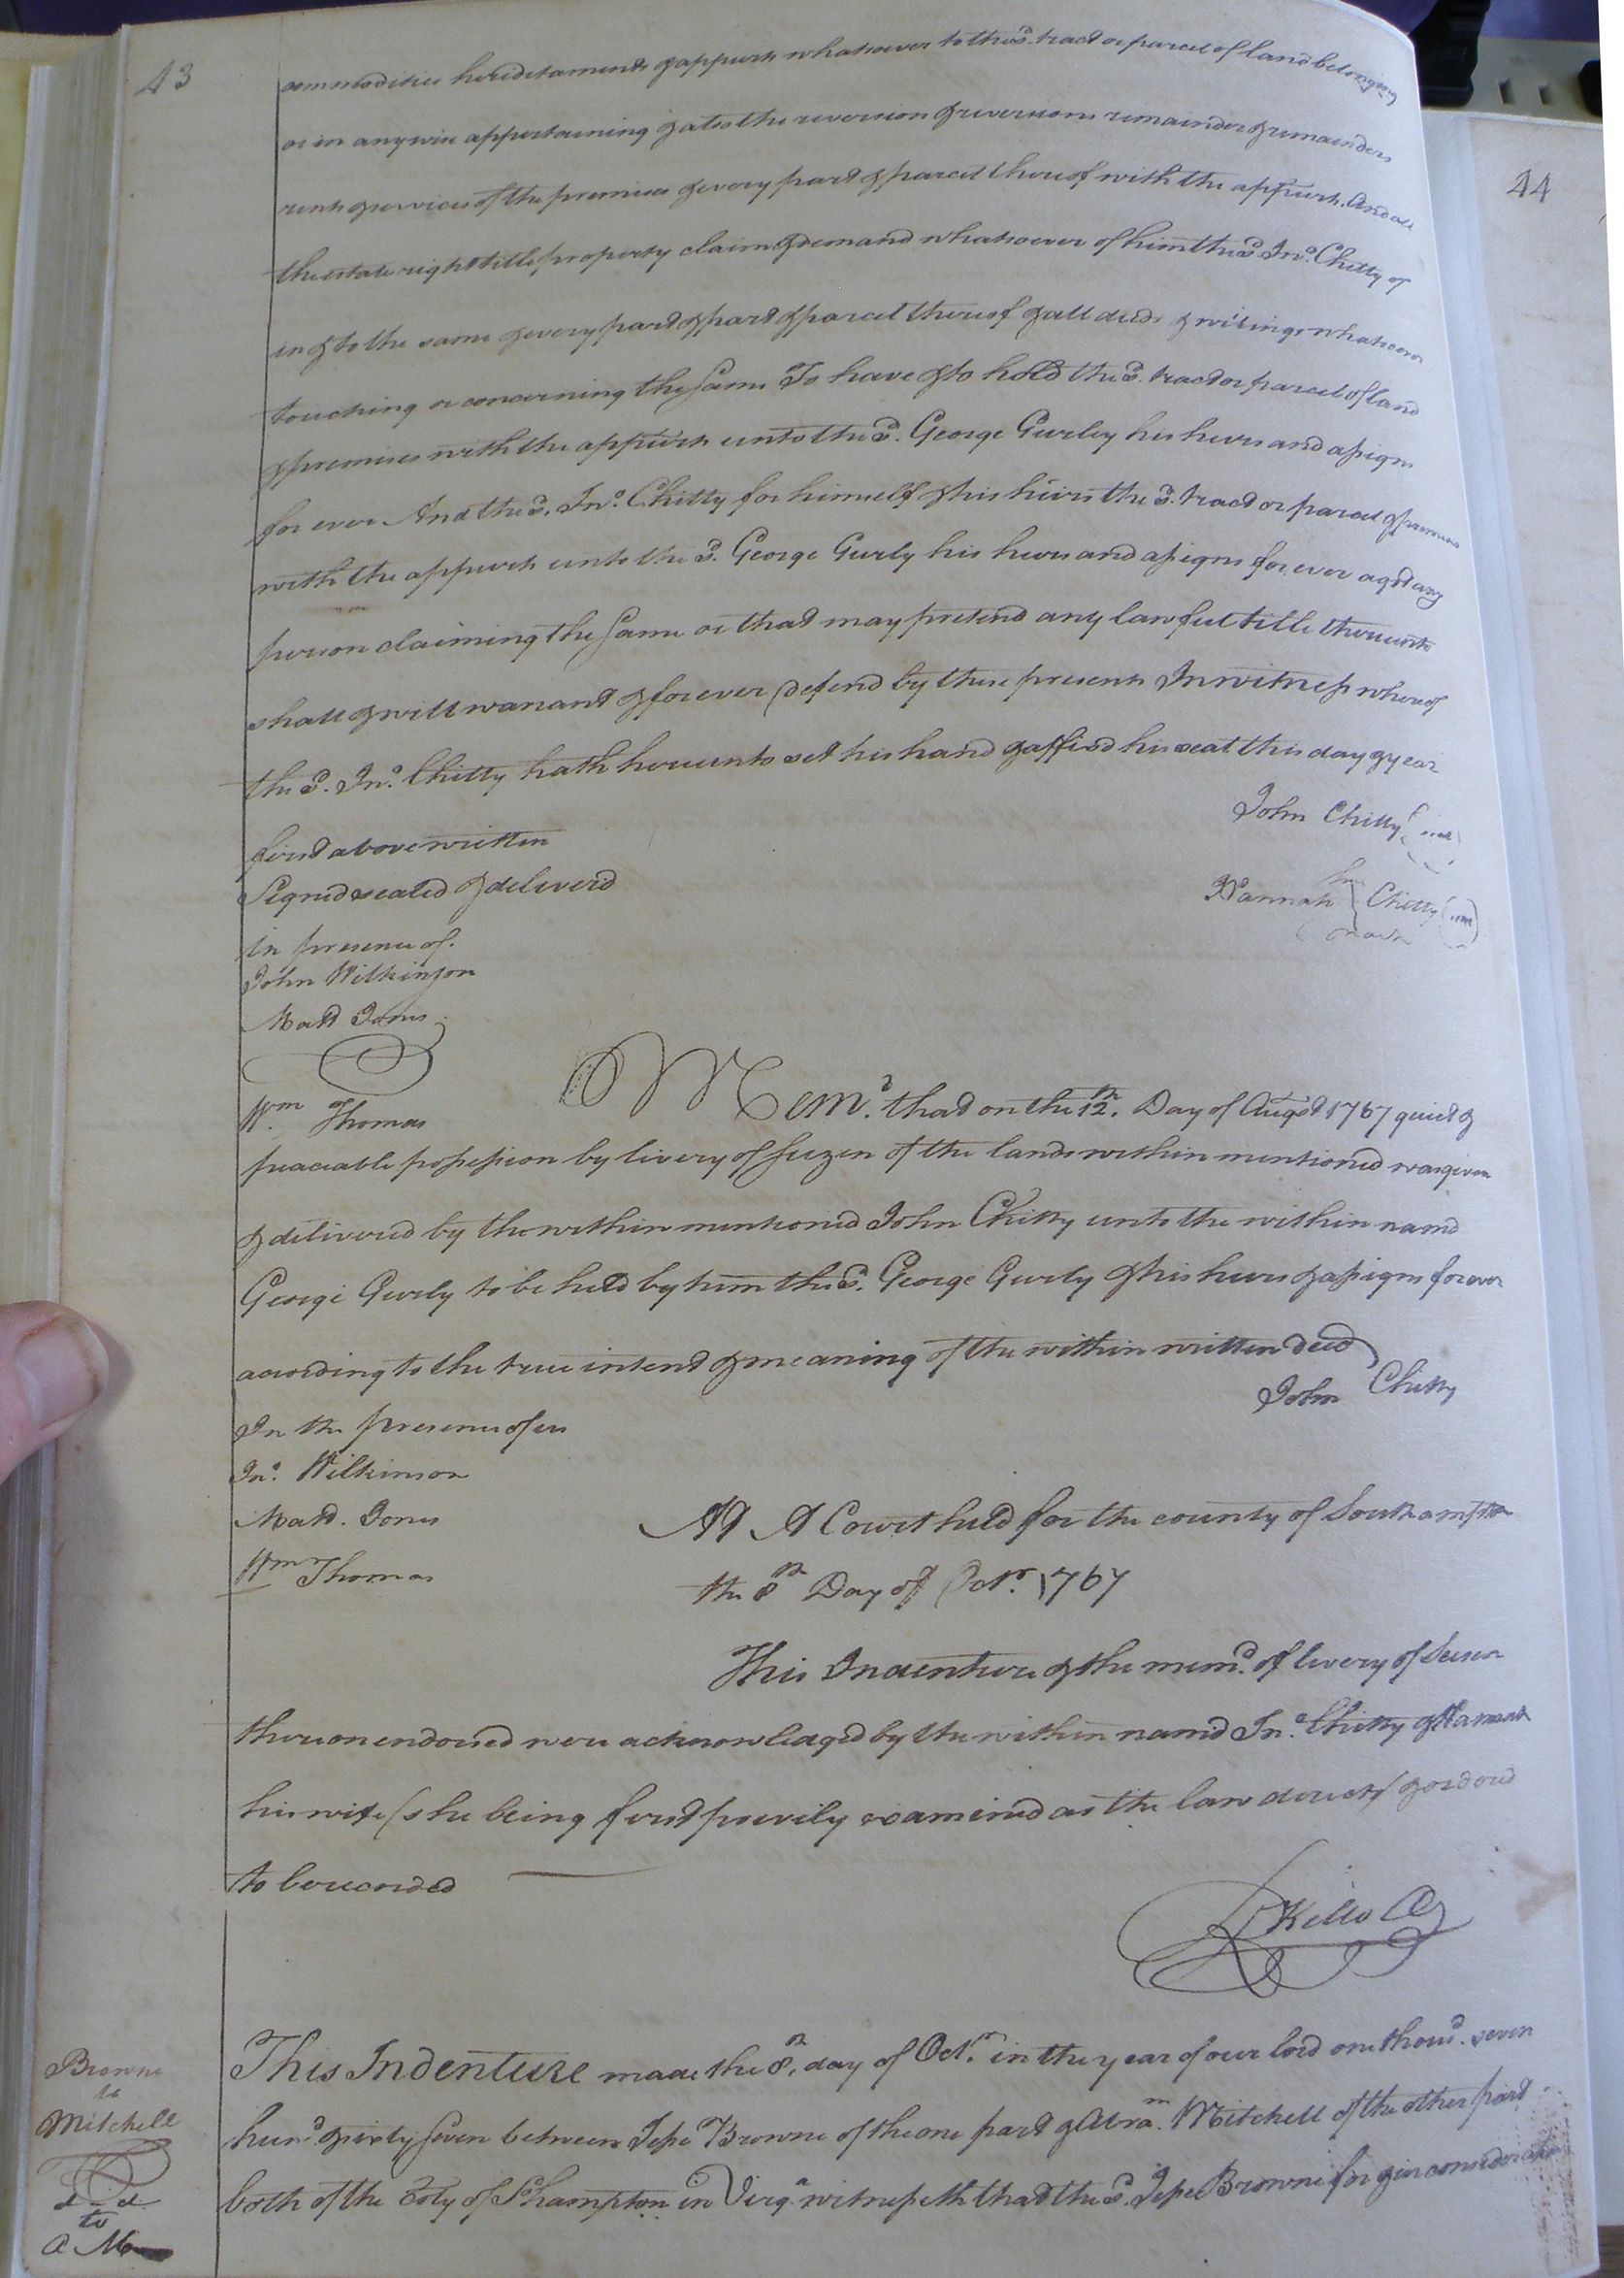 43
commodities hereditaments & appurts whatsoever to the sd. tract or parcel of land belonging
or in anywise appertaining & also the reversion & reversions remainder & remainders
rents & services of the premises & every part & parcel thereof with the appurts. And all
the estate right title property claim & demand whatsoever of him the sd. Jno. Chitty of
in & to the same & every part & part & parcel thereof & all deeds & writings whatsoever
touching or concerning the same To have & to hold the sd. tract or parcel of land
& premises with the appurts unto the sd. George Gurley his heirs and assigns
for ever And the sd. Jno. Chitty for himself & his heirs the sd. tract or parcel & premises
with the appurts unto the sd. George Gurly his heirs and assigns for ever agst any
person claiming the same or that may pretend any lawful title thereunto
shall & will warrant & forever defend by these presents In witness whereof
the sd. Jno. Chitty hath hereunto set his hand & affixd his seal this day & year
first above written
John Chitty (seal)
Signed sealed & deliverd
Hannah her mark Chitty (seal)
in presence of.
John Wilkinson
Matt Jones
Wm. Thomas
Memd. that on the 12th. Day of Augst 1767 quiet &
peaceable possession by livery of seizen of the lands within mentioned was given
& delivered by the within mentioned John Chitty unto the within namd
George Gurly to be held by him the sd. George Gurly & his heirs & assigns for ever
according to the true intent & meaning of the within written deed
John Chitty
In the presence of us
Jno. Wilkinson
Matt. Jones
Wm Thomas
At A Court held for the county of Southampton
the 8th Day of Octr. 1767
This Indenture & the memd. of livery of seisen
thereon endorsed were acknowledged by the within namd Jno. Chitty & Hannah
his wife (she being first privily examined as the law directs) & ordered
to be recorded
R Kello C
Browne
to
Mitchell
d-d
to
A M
This Indenture made the 8th. day of Octr. in the year of our lord one thousd. seven
hund. & sixty seven between Jesse Browne of the one part & Abram. Mitchell of the other part
both of the Coty of Shampton in Virga. witnesseth that the sd. Jesse Browne for & in consideration
44